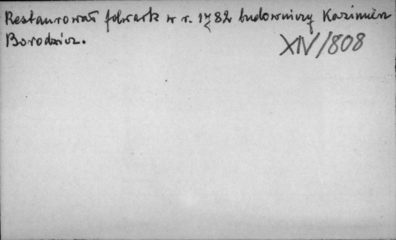 Restaurował folwark w r. 1782 budowniczy Kazimierz
Borodzicz.
XIV/808